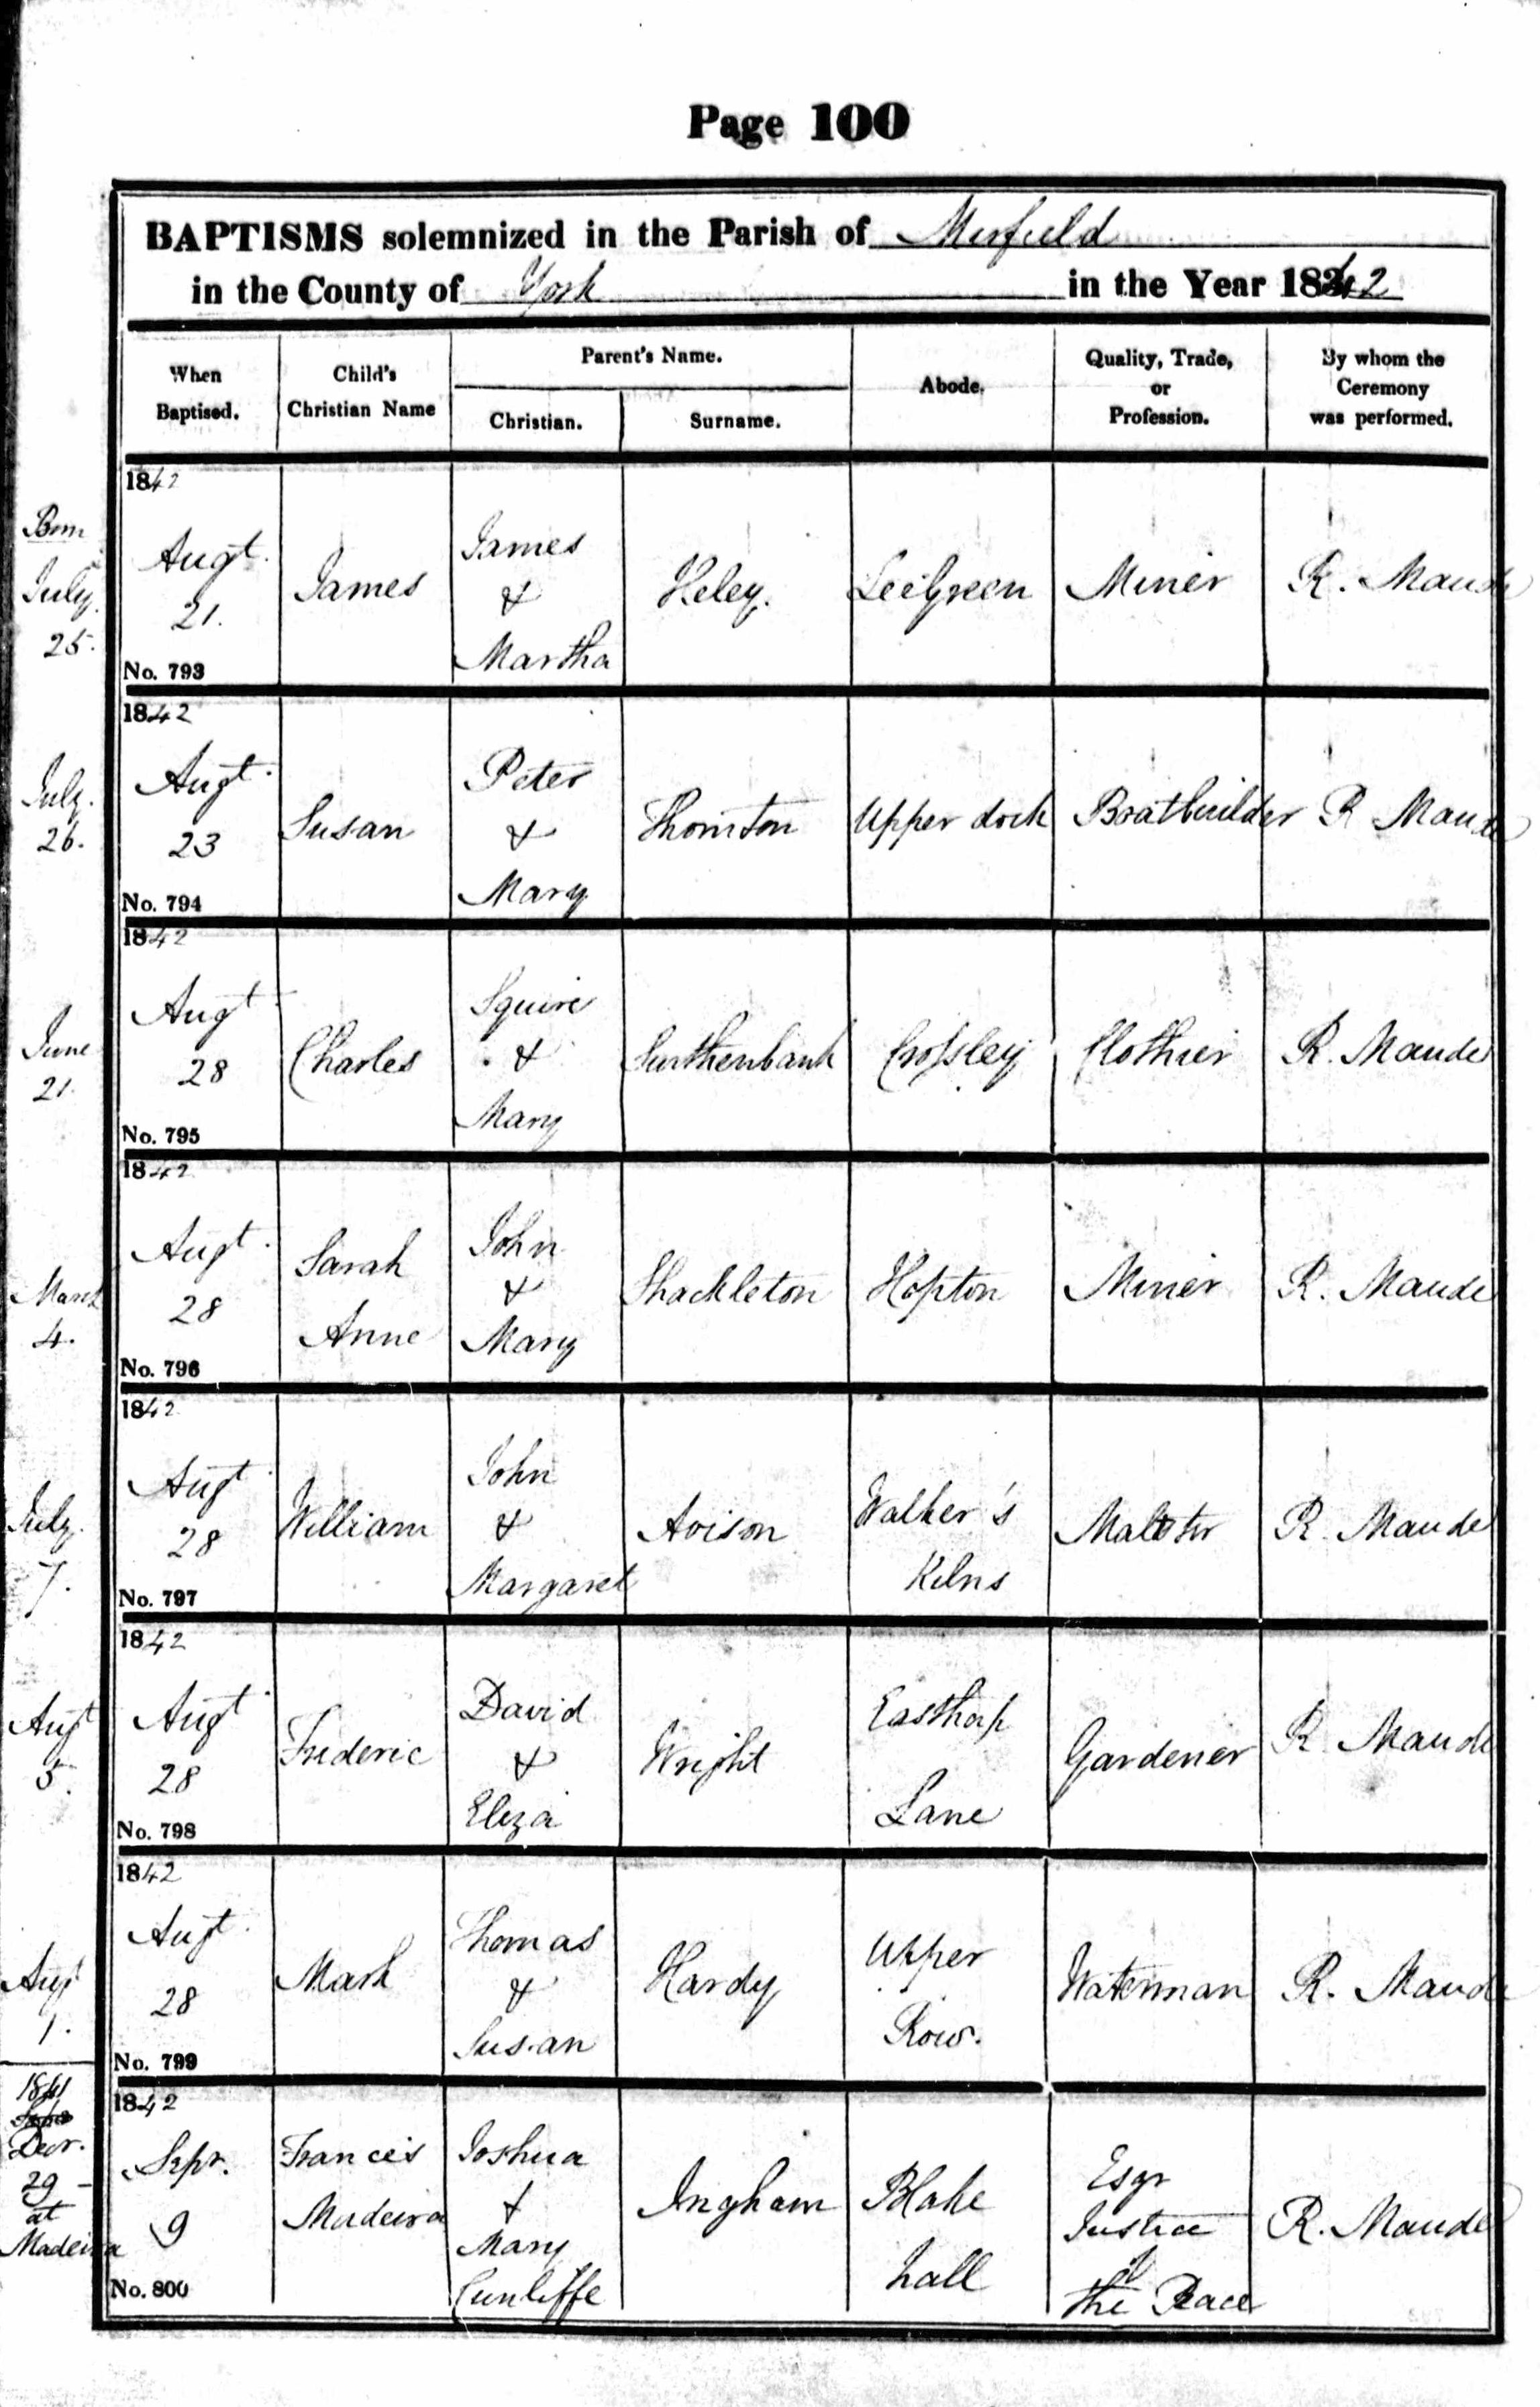 Page 100
BAPTISMS solemnized in the Parish of Mirfield
in the County of York in the Year 1842
When Baptised.
Child's Christian Name
Parent's Name.
Christian.
Surname.
Abode.
Quality, Trade, or Profession.
By whom the Ceremony was performed.
Born July 25.
1842 Augt. 21. No. 793
James
James & Martha
Heley.
LeeGreen
Miner
R. Maude
July. 26.
1842 Augt. 23 No. 794
Susan
Peter & Mary
Thornton
Upper dock
Boatbuilder
R Maude
June 21.
1842 Augt 28 No. 795
Charles
Squire & Mary
Crossley
Clothier
R. Maude
March 4.
1842 Augt. 28 No. 796
Sarah Anne
John & Mary
Shackleton
Hopton
Miner
R. Maude
July. 7.
1842 Augt 28 No. 797
William
John & Margaret
Avison
Walker's Kilns
Maltster
R. Maude
Augt 5.
1842 Augt 28 No. 798
Frederic
David & Eliza
Wright
Easthorp Lane
Gardener
R. Maude
Augt 1.
1842 Augt. 28 No. 799
Mark
Thomas & Susan
Hardy
Upper Row.
Waterman
R. Maude
1841 Decr. 29 - at Madeira
1842 Sepr. 9 No. 800
Francis Madeira
Joshua & Mary Cunliffe
Ingham
Blake hall
Esqr Justice of the Peace
R. Maude